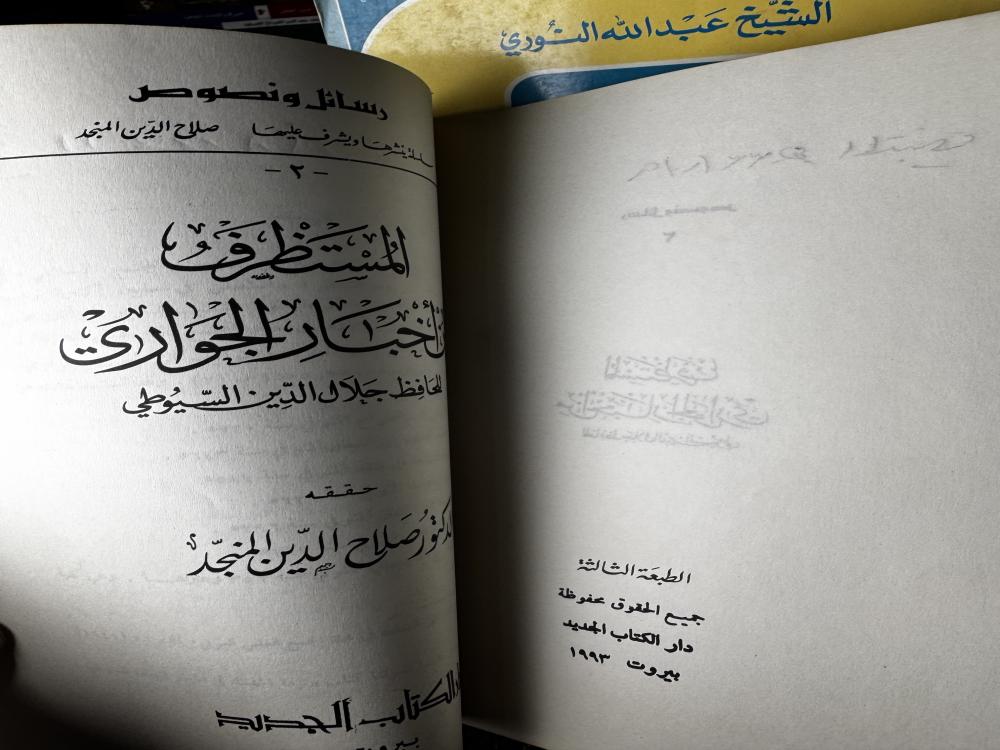 الشيخ عبد الله النوري
رسائل ونصوص
سلسلة ينشرها ويشرف عليها صلاح الدّين المنجد
- ٢ -
المُسْتَظْرَفُ
أخْبَارِ الجَوَارِي
للحَافِظ جَلَال الدِّين السّيُوطي
حققه
الدكتور صَلاح الدِّين المنجّد
الكتاب الجديد
بيروت
الطبعَة الثالثة
جميع الحقوق محفوظة
دار الكتاب الجديد
بيروت ١٩٩٣